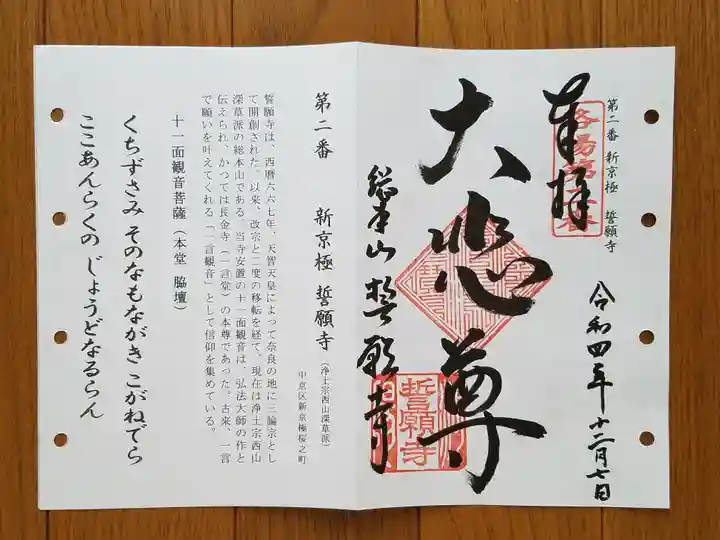 第二番 新京極 誓願寺
奉拝
洛陽第二番
令和四年十二月七日
大悲尊
総本山 誓願寺
誓願寺
第二番 新京極 誓願寺（浄土宗西山深草派）
中京区新京極桜之町
誓願寺は、西暦六六七年、天智天皇によって奈良の地に三論宗とし
て開創された。以来、改宗と二度の移転を経て、現在は浄土宗西山
深草派の総本山である。当寺安置の十一面観音は、弘法大師の作と
伝えられ、かつては長金寺（一言堂）の本尊であった。古来、一言
で願いを叶えてくれる「一言観音」として信仰を集めている。
十一面観音菩薩（本堂 脇壇）
くちずさみ そのなもながき こがねでら
ここあんらくの じょうどなるらん